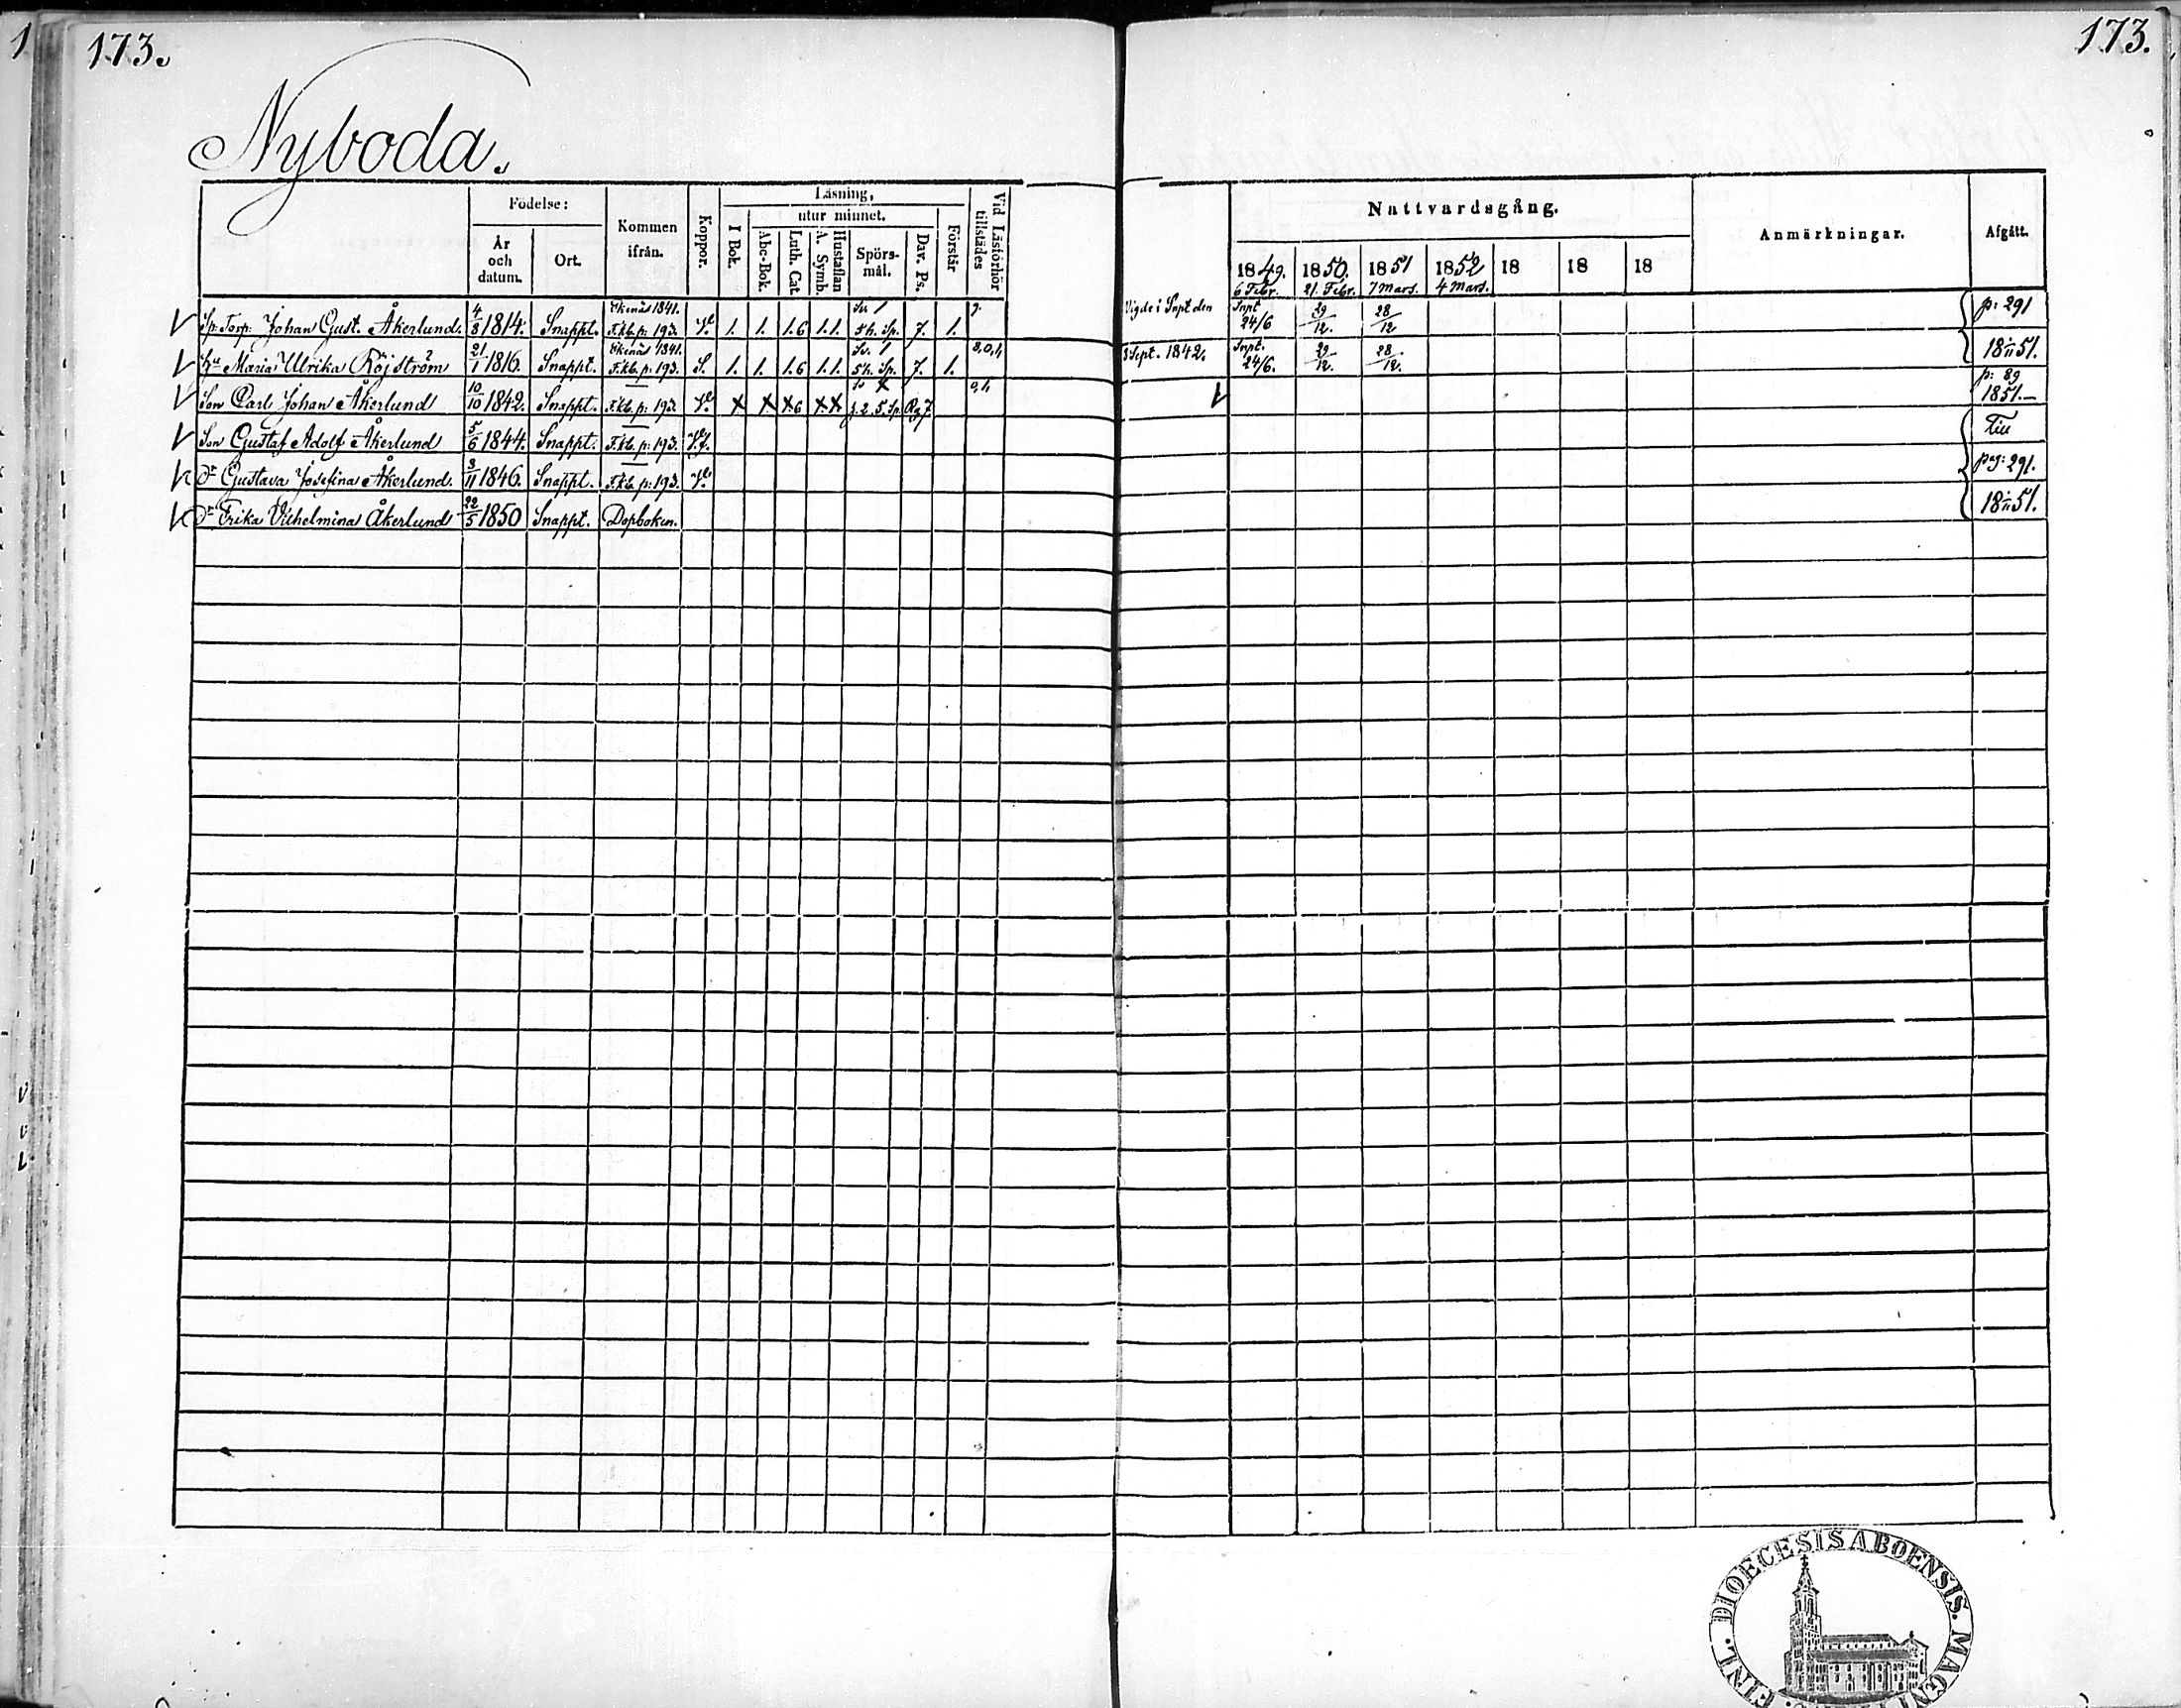 173.
173.
Nyboda.
Födelse:
År och datum.
Ort.
Kommen ifrån.
Koppor.
Läsning,
utur minnet.
I Bok.
Abc-Bok.
Luth. Cat.
A. Symb.
Hustaflan
Spörs-mål.
Dav. Ps.
Förstår
Vid Läsförhör tillstädes
Nattvardsgång.
1849. 6 Febr.
1850. 21. Febr.
1851 7 Mars.
1852 4 Mars.
18
18
18
Anmärkningar.
Afgått.
Sp. Torp. Johan Gust. Åkerlund. 4/8 1814. Snappt. Ekenäs 1841. F.kb. p: 193. 1. 1. 1.6 1.1. Sv. 1 5 h. Sp. 7. 1. Vigde i Snpt den Snpt 24/6 29/12. 28/12 p: 291
Hu Maria Ulrika Röjström 21/1 1816. Snappt. Ekenäs 1841. F.kb. p: 193. S. 1. 1. 1.6 1.1. Sv. 1 5 h. Sp. 7. 1. 3 Sept. 1842. Snpt. 24/6. 29/12. 28/12. 18 51.
Son Carl Johan Åkerlund 10/10 1842. Snappt. F.kb. p: 193. p: 89 1851.
Son Gustaf Adolf Åkerlund 5/6 1844. Snappt. F.kb. p: 193.
Dr Gustava Josefina Åkerlund. 3/11 1846. Snappt. F.kb. p: 193. pag: 291.
Dr Erika Vilhelmina Åkerlund 22/5 1850 Snappt. Dopboken. 18 51.
FINL. DIOECESIS ABOENSIS. MAGNI